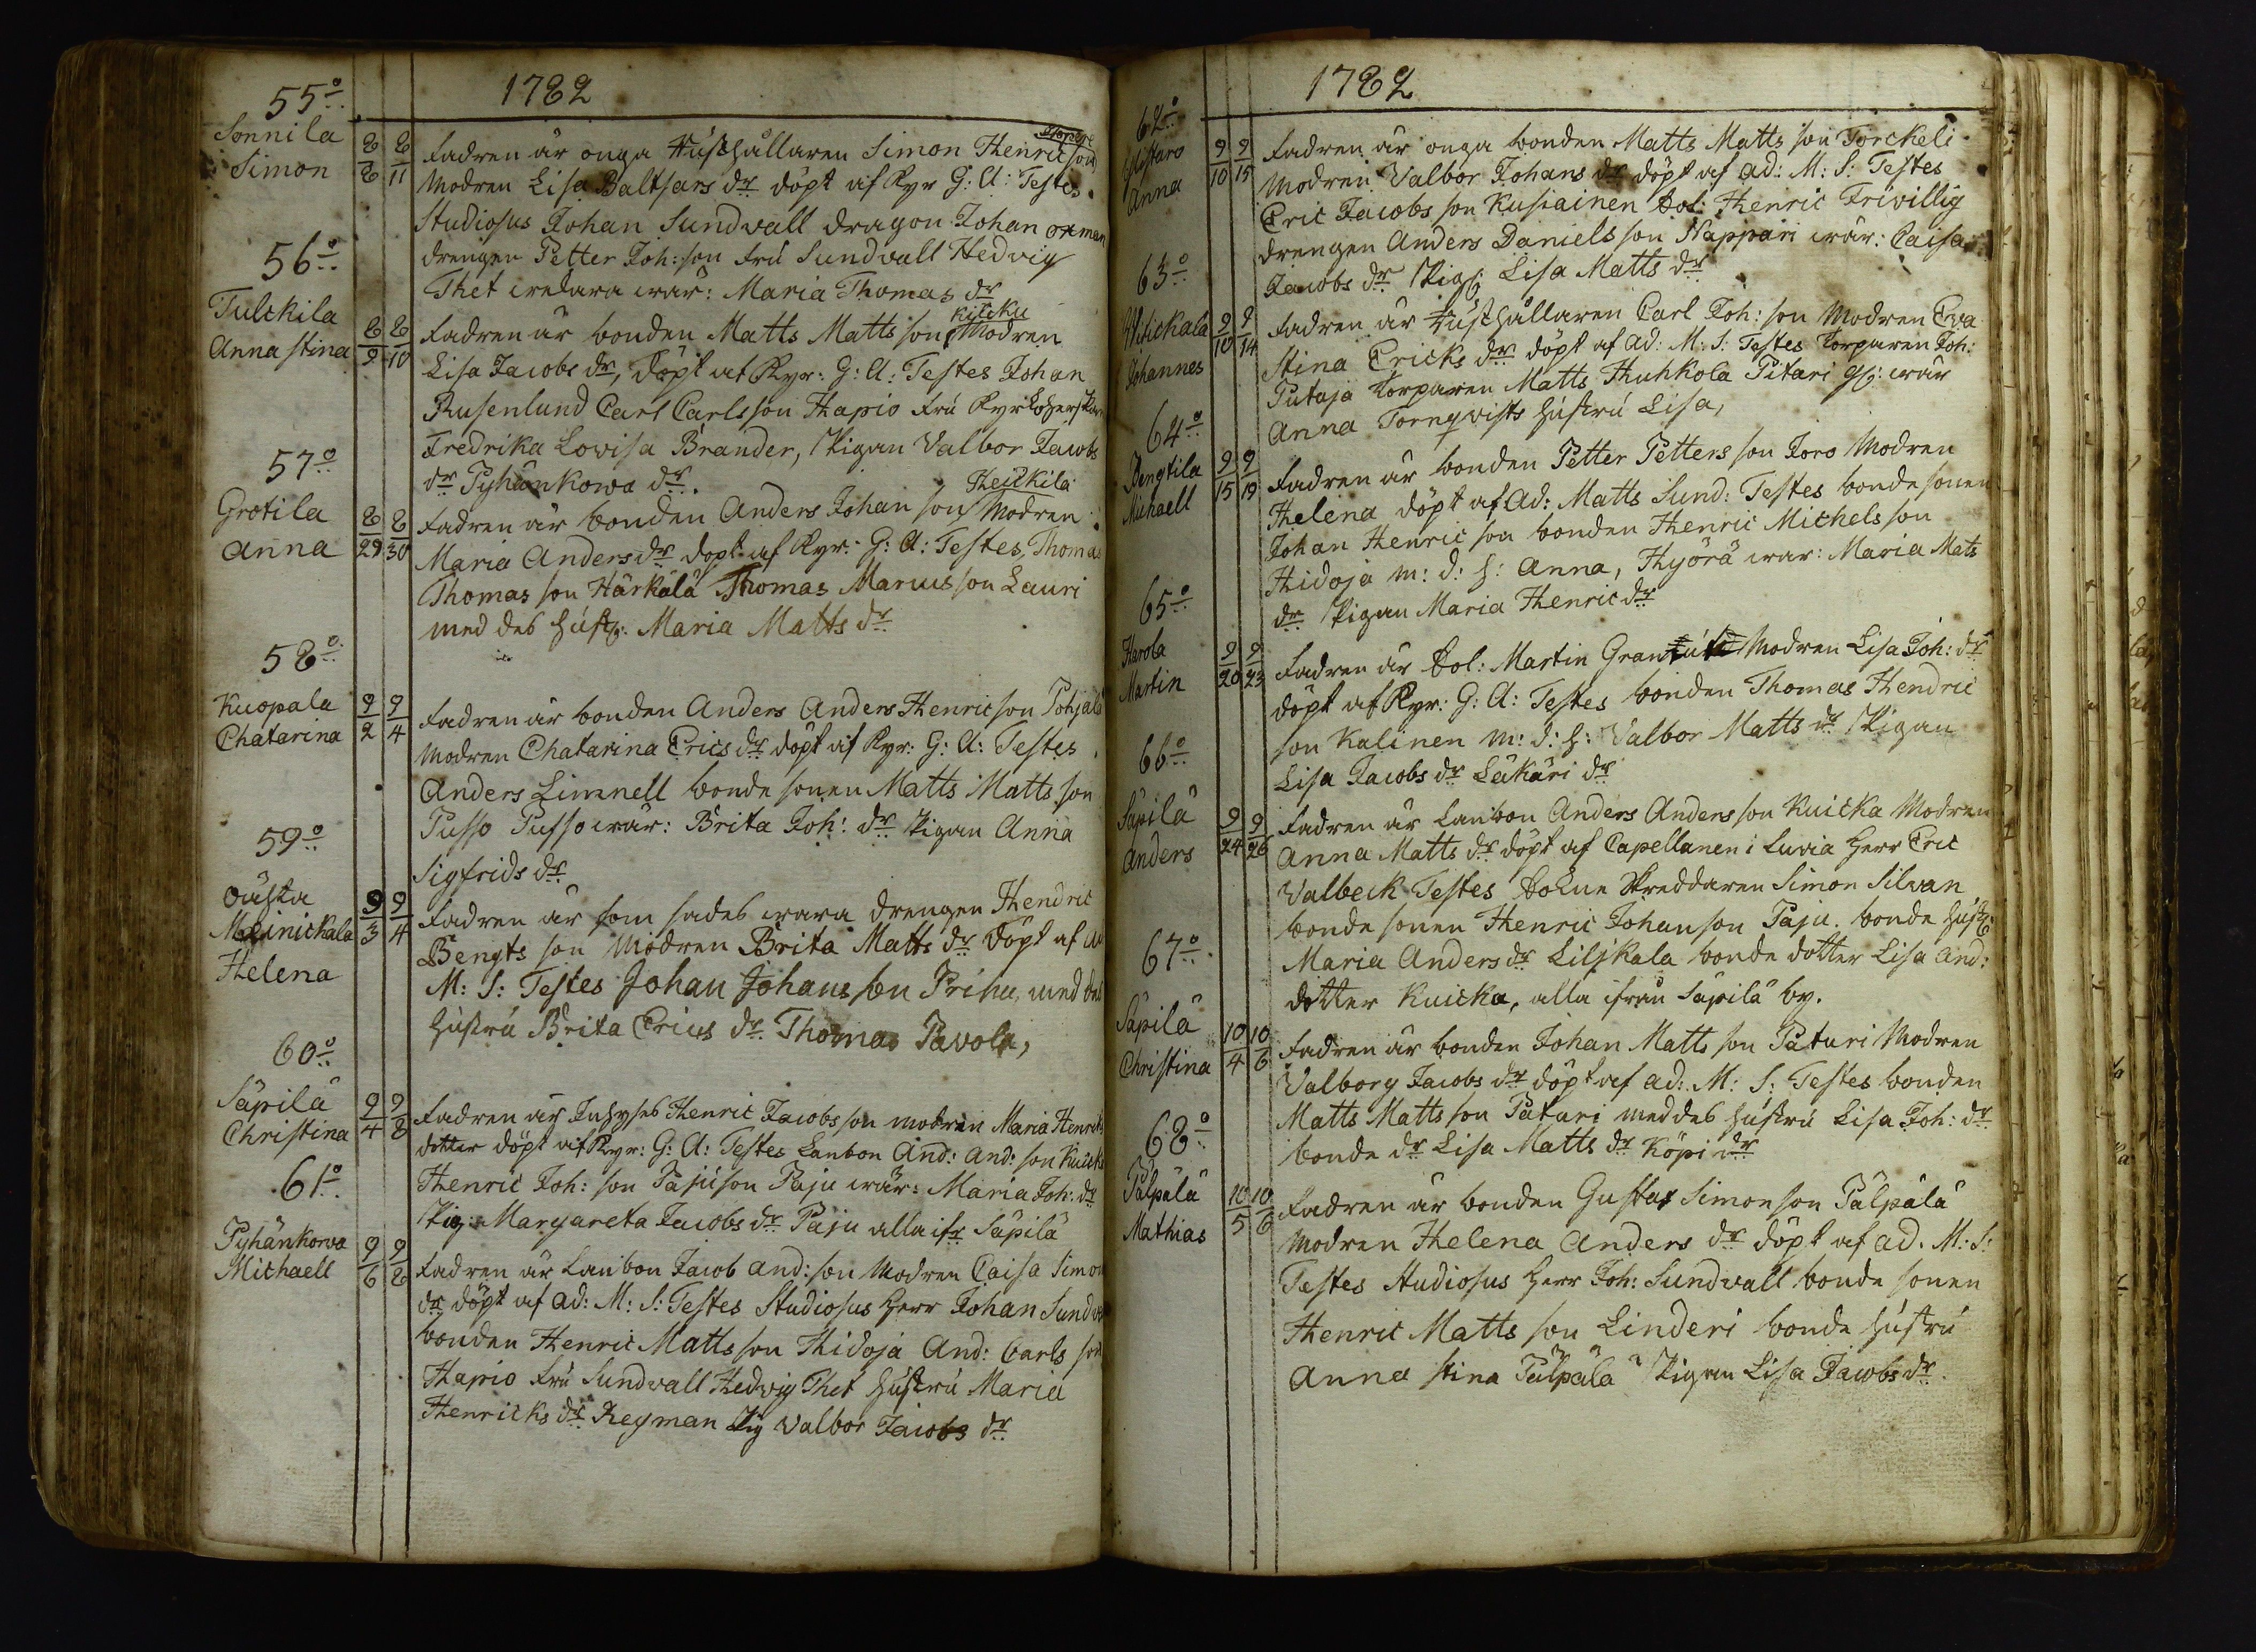 1782
55o
Sonnila
Simon
8/8 8/11
Fadren är onga Hushållaren Simon Henric son
Modren Lisa Baltsars dr döpt af Kyr G: A: Testes
Studiosus Johan Sundvall dragon Johan oxman
drengen Petter Joh: son fru Sundvall Hedvig
Thet wrar: Maria Thomas dr
56o
Tulckila
Anna stina
8/9 8/10
Fadren är bonden Matts Matts son Kucku Modren
Lisa Jacobs dr, döpt af Kyr: G: A: Testes Johan
Rusenlund Carl Carlsson Hapio fru
Fredrika Lovisa Brander, Pigan Valbor Jacobs
dr Pyhänkowa dr.
57o
Grotila
Anna
8/29 8/30
Fadren är bonden Anders Johan son Heickilä Modren
Maria Anders dr döpt af Kyr: G: A: Testes, Thomas
Thomas son Härkälä Thomas Marcus son Lauri
med des hust: Maria Matts dr
58o
Kuopala
Chatarina
9/2 9/4
Fadren är bonden Anders Anders Henric son Pohjala
Modren Chatarina Erics dr döpt af Kyr: G: A: Testes
Anders Limnell bonde sonen Matts Matts son
Pusso Pusso wrär: Brita Joh: dr Pigan Anna
Sigfrids dr
59o
oächta
Meinickala
Helena
9/3 9/4
Fadren är som sades wara drengen Hendric
Bengts son Modren Brita Matts dr döpt af Ad
M: S: Testes Johan Johans son Prihu, med des
hustru Brita Erics dr Thomas Pavola,
60o
Säpilä
Christina
9/4 9/8
Fadren är Inhyses Henric Jacobs son modren Maria Henricks
dotter döpt af Kyr: G: A: Testes Lanbon And: And: son Kuicka
Henric Joh: son Paju son Paju wrär: Maria Joh: dr
Pig: Margareta Jacobs dr Paju alla ifr Säpilä
61o
Pyhänkorva
Michaell
9/6 9/8
Fadren är Lanbon Jacob And: son Modren Caisa Simon
dr döpt af Ad: M: S: Testes Studiosus Herr Johan Sundv
bonden Henric Matts son Hidoja And: Carls son
Hapio fru Sundvall Hedvig Thet hustru Maria
Henricks dr Reyman Pig Valbor Jacobs dr
1782
62o
Anna
9/10 9/15
Fadren är onga bonden Matts Matts son Torckeli
Modren Valbor Johans dr döpt af Ad: M: S: Testes
Eric Jacobs son Kusiainen Sol: Henric Frivillig
drengen Anders Daniels son Nappari wrär: Caisa
Jacobs dr Pig: Lisa Matts dr
63o
Johannes
9/10 9/14
Fadren är Hushållaren Carl Joh: son Modren Eva
Stina Ericks dr döpt af Ad: M: S: Testes Torparen Joh:
Putaja Torparen Matts Huhkola Pitari wrär
Anna Tornqvists hustru Lisa,
64o
Bengtila
Michaell
9/15 9/19
Fadren är bonden Petter Petters son Joro Modren
Helena döpt af Ad: Matts Sund: Testes bonde sonen
Johan Henric son bonden Henric Michels son
Hidoja m: d: h: Anna, Hyörä wrar: Maria Mats
dr Pigan Maria Henric dr
65o
Harola
Martin
9/20 9/23
Fadren är Sol: Martin Gran Modren Lisa Joh: dr
döpt af Kyr: G: A: Testes bonden Thomas Hendric
son Kalinen m: d: h: Valbor Matts dr Pigan
Lisa Jacobs dr Läkäri dr
66o
Säpilä
Anders
9/24 9/26
Fadren är Lanbon Anders Anders son Kuicka Modren
Anna Matts dr döpt af Capellanen i Luvia Herr Eric
Valbeck Testes Skreddaren Simon Silvan
bonde sonen Henric Johanson Paju. bonde hust:
Maria Anders dr Liljkala bonde dotter Lisa And:
dotter Kuicka, alla ifrån Säpilä by.
67o
Säpilä
Christina
10/4 10/6
Fadren är bonden Johan Matts son Paturi Modren
Valborg Jacobs dr döpt af Ad: M: S: Testes bonden
Matts Matts son Paturi med des hustru Lisa Joh: dr
bonde dr Lisa Matts dr Köpi dr
68o
Pälpälä
Mathias
10/5 10/6
Fadren är bonden Gustaf Simonson Pälpälä
Modren Helena Anders dr döpt af Ad. M: S:
Testes Studiosus Herr Joh: Sundvall bonde sonen
Henric Matts son Linderi bonde hustru
Anna stina Pälpälä Pigan Lisa Jacobs dr